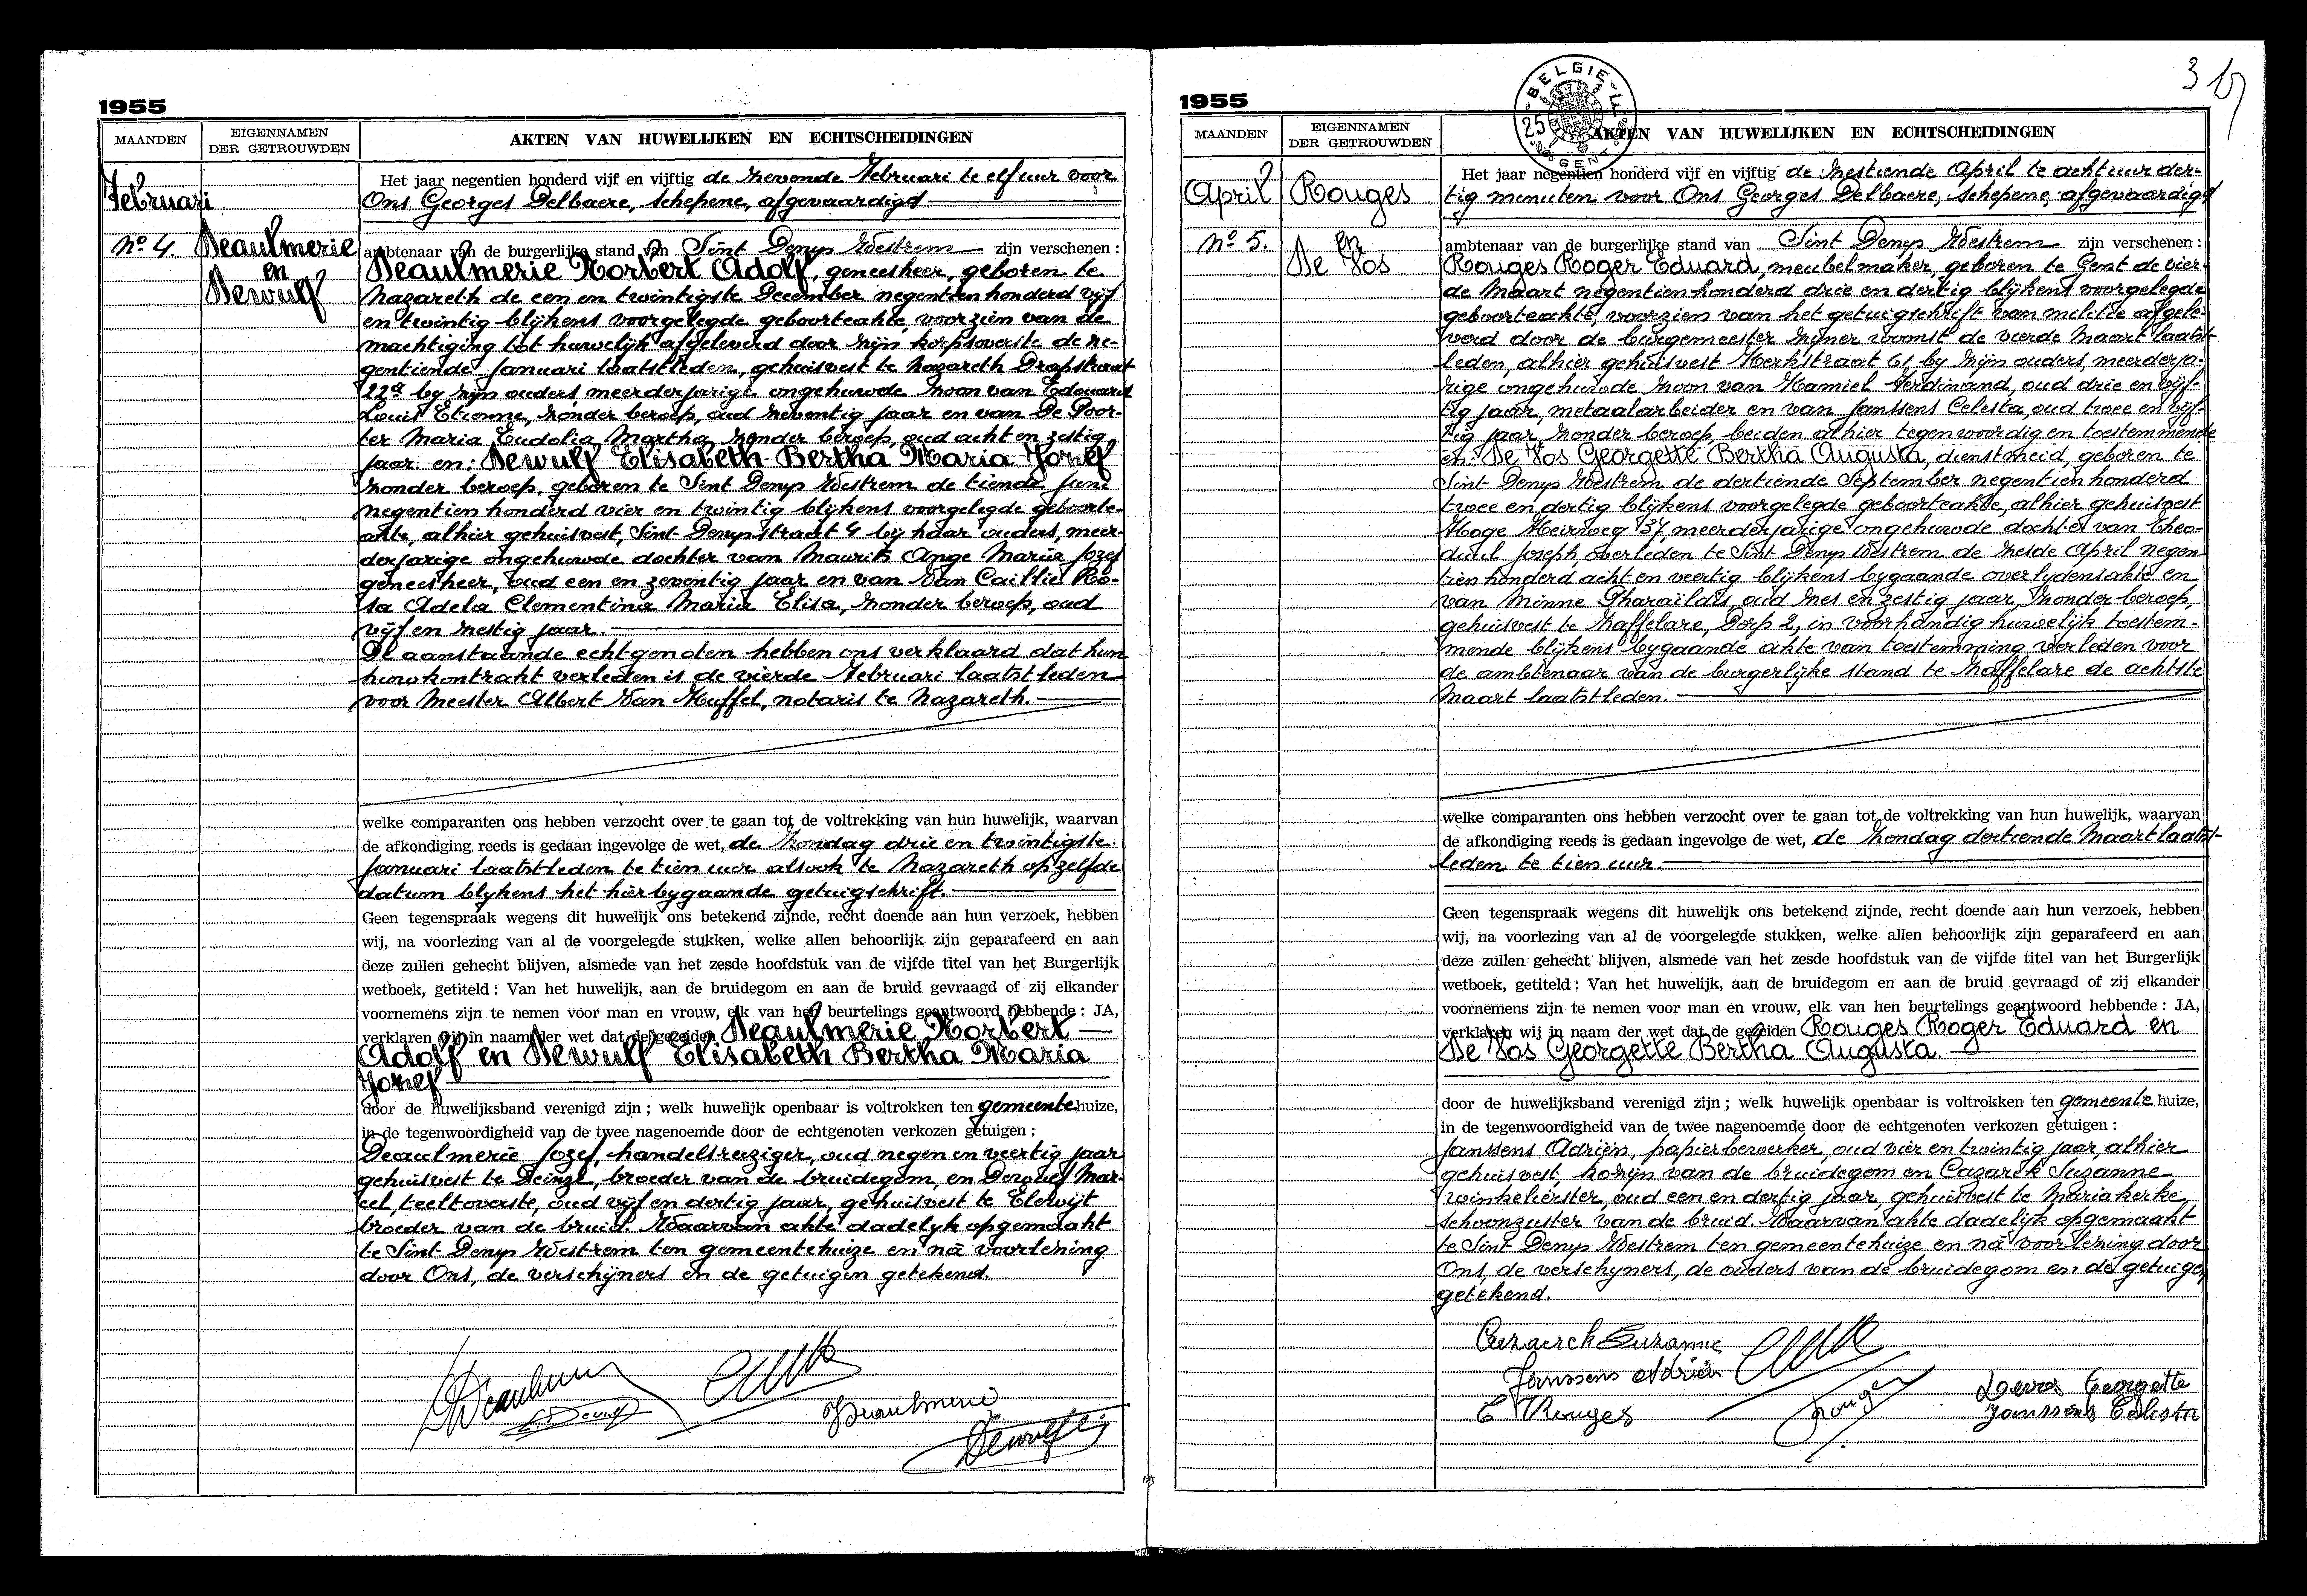 1955
MAANDEN
EIGENNAMEN
DER GETROUWDEN
AKTEN VAN HUWELIJKEN EN ECHTSCHEIDINGEN
Februari
No. 4.
Deaulmerie
en
Dewulf
Het jaar negentien honderd vijf en vijftig de zevende Februari te elf uur voor
Ons Georges Delbaere, schepene, afgevaardigd
ambtenaar van de burgerlijke stand van Sint Denys Westrem zijn verschenen :
Deaulmerie Norbert Adolf, geneesheer, geboren te
Nazareth de een en twintigste December negentien honderd vijf
en twintig blijkens voorgelegde geboorteakte, voorzien van de
machtiging tot huwelijk afgeleverd door zijn korpsoverste de ne-
gentiende Januari laatstleden, gehuisvest te Nazareth Drapstraat
22a by zijn ouders, meerderjarige ongehuwde zoon van Edouard
Louis Etienne, zonder beroep, oud zeventig jaar en van De Poor-
ter Maria Eudolia Martha, zonder beroep, oud acht en zestig
jaar. en: Dewulf Elisabeth Bertha Maria Jozef
zonder beroep, geboren te Sint Denys Westrem de tiende Juni
negentien honderd vier en twintig blijkens voorgelegde geboorte-
akte, alhier gehuisvest, Sint-Denysstraat 4 bij haar ouders, meer-
derjarige ongehuwde dochter van Maurits Ange Maria Jozef
geneesheer, oud een en zeventig jaar en van Van Caillie Ro-
sa Adela Clementina Maria Elisa, zonder beroep, oud
vijf en zestig jaar.
De aanstaande echtgenoten hebben ons verklaard dat hun
huwkontrakt verleden is de vierde Februari laatstleden
voor Meester Albert Van Huffel, notaris te Nazareth.
welke comparanten ons hebben verzocht over te gaan tot de voltrekking van hun huwelijk, waarvan
de afkondiging reeds is gedaan ingevolge de wet, de Zondag drie en twintigste
Januari laatstleden te tien uur alsook te Nazareth op zelfde
datum blykens het hierbygaande getuigschrift.
Geen tegenspraak wegens dit huwelijk ons betekend zijnde, recht doende aan hun verzoek, hebben
wij, na voorlezing van al de voorgelegde stukken, welke allen behoorlijk zijn geparafeerd en aan
deze zullen gehecht blijven, alsmede van het zesde hoofdstuk van de vijfde titel van het Burgerlijk
wetboek, getiteld : Van het huwelijk, aan de bruidegom en aan de bruid gevraagd of zij elkander
voornemens zijn te nemen voor man en vrouw, elk van hen beurtelings geantwoord hebbende : JA,
verklaren wij in naam der wet dat de gezeiden Deaulmerie Norbert
Adolf en Dewulf Elisabeth Bertha Maria
Jozef
door de huwelijksband verenigd zijn ; welk huwelijk openbaar is voltrokken ten gemeentehuize,
in de tegenwoordigheid van de twee nagenoemde door de echtgenoten verkozen getuigen :
Deaulmerie Jozef, handelsreiziger, oud negen en veertig jaar
gehuisvest te Deinze, broeder van de bruidegom, en Dewulf Mar-
cel teeltoverste, oud vijf en dertig jaar, gehuisvest te Elewijt
broeder van de bruid. Waarvan akte dadelyk opgemaakt
te Sint Denys Westrem ten gemeentehuize en nà voorlezing
door Ons, de verschijners en de getuigen getekend.
1955
BELGIE
25 F
GENT
3
MAANDEN
EIGENNAMEN
DER GETROUWDEN
AKTEN VAN HUWELIJKEN EN ECHTSCHEIDINGEN
April
No. 5.
Rouges
en
De Vos
Het jaar negentien honderd vijf en vijftig de zestiende April te acht uur der-
tig minuten voor Ons Georges Delbaere, schepene, afgevaardigd
ambtenaar van de burgerlijke stand van Sint Denys Westrem zijn verschenen :
Rouges Roger Eduard, meubelmaker, geboren te Gent de vier-
de Maart negentien honderd drie en dertig blijkens voorgelegde
geboorteakte, voorzien van het getuigschrift van militie afgele-
verd door de burgemeester zijner woonst de vierde Maart laatst-
leden, alhier gehuisvest Kerkstraat 61, by zijn ouders, meerderja-
rige ongehuwde zoon van Kamiel Ferdinand, oud drie en vijf-
tig jaar, metaalarbeider en van Janssens Celesta, oud twee en vijf-
tig jaar, zonder beroep, beiden alhier tegenwoordig en toestemmende
en: De Vos Georgette Bertha Augusta, dienstmeid, geboren te
Sint Denys Westrem de dertiende September negentien honderd
twee en dertig blijkens voorgelegde geboorteakte, alhier gehuisvest
Hoge Heirweg 37, meerderjarige ongehuwde dochter van Theo-
duul Joseph, overleden te Sint Denys Westrem de zesde April negen-
tien honderd acht en veertig blijkens bygaande overlydensakte en
van Minne Pharaïldis, oud zes en zestig jaar, zonder beroep,
gehuisvest te Zaffelare, Dorp 2, in voorhandig huwelijk toestem-
mende blijkens bygaande akte van toestemming verleden voor
de ambtenaar van de burgerlijke stand te Zaffelare de achtste
Maart laatstleden.
welke comparanten ons hebben verzocht over te gaan tot de voltrekking van hun huwelijk, waarvan
de afkondiging reeds is gedaan ingevolge de wet, de Zondag dertiende Maart laatst-
leden te tien uur.
Geen tegenspraak wegens dit huwelijk ons betekend zijnde, recht doende aan hun verzoek, hebben
wij, na voorlezing van al de voorgelegde stukken, welke allen behoorlijk zijn geparafeerd en aan
deze zullen gehecht blijven, alsmede van het zesde hoofdstuk van de vijfde titel van het Burgerlijk
wetboek, getiteld : Van het huwelijk, aan de bruidegom en aan de bruid gevraagd of zij elkander
voornemens zijn te nemen voor man en vrouw, elk van hen beurtelings geantwoord hebbende : JA,
verklaren wij in naam der wet dat de gezeiden Rouges Roger Eduard en
De Vos Georgette Bertha Augusta.
door de huwelijksband verenigd zijn ; welk huwelijk openbaar is voltrokken ten gemeente huize,
in de tegenwoordigheid van de twee nagenoemde door de echtgenoten verkozen getuigen :
Janssens Adriën, papierbewerker, oud vier en twintig jaar, alhier
gehuisvest, kozijn van de bruidegom en Cazaerck Suzanne
winkelierster, oud een en dertig jaar, gehuisvest te Mariakerke,
schoonzuster van de bruid. Waarvan akte dadelijk opgemaakt
te Sint Denys Westrem ten gemeentehuize en nà voorlezing door
Ons, de verschyners, de ouders van de bruidegom en de getuigen
getekend.
Cazaerck Suzanne
Janssens Adriën
Rouges
Devos Georgette
Janssens Celesta